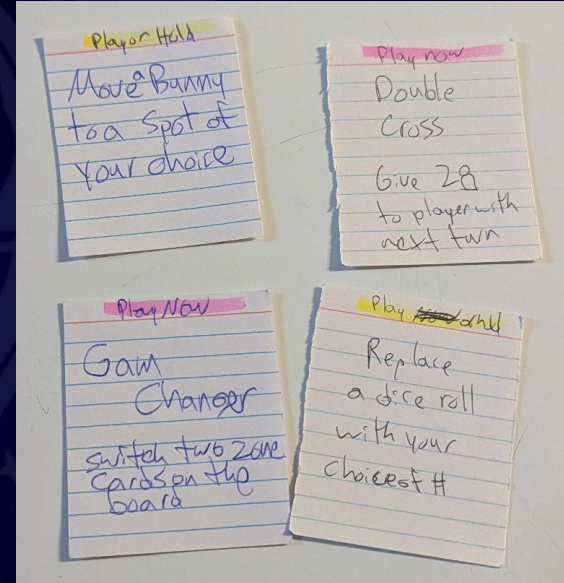 Play or Hold
Move a Bunny
to a Spot of
your choice
Play now
Double
Cross
Give 2
to player with
next turn
Play Now
Gam
Changer
switch two Zone
Cards on the
board
Play or hld
Replace
a dice roll
with your
choice of #